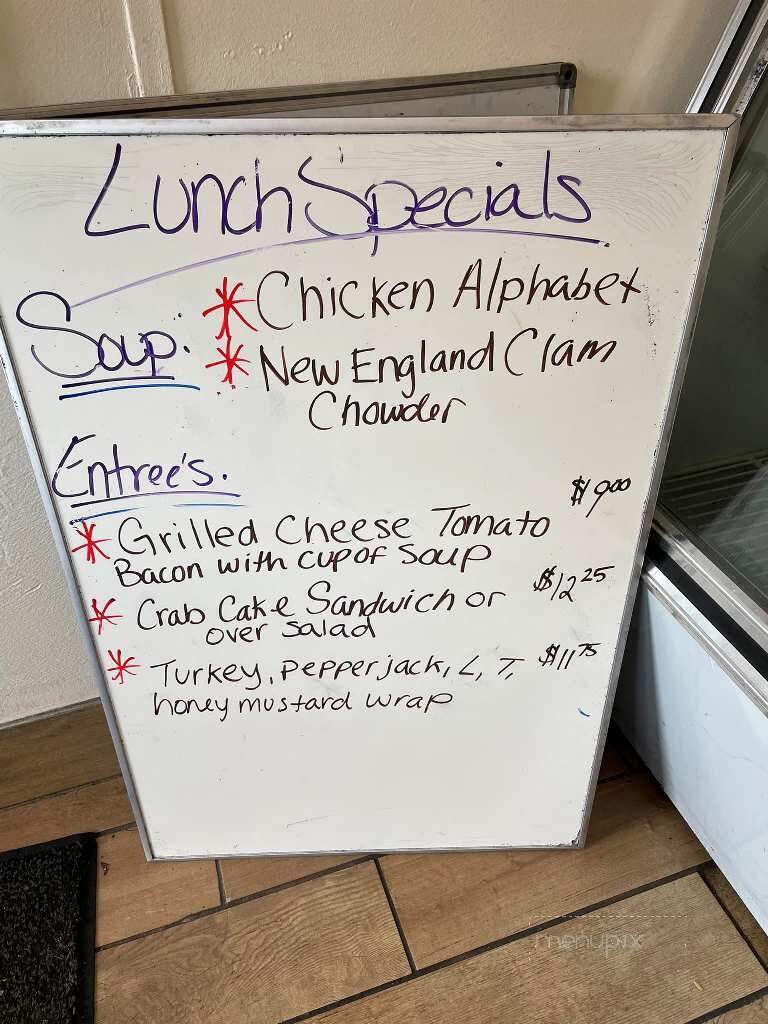 Lunch Specials
Soup. * Chicken Alphabet
* New England Clam
Chowder
Entree's.
* Grilled Cheese Tomato $9.00
Bacon with cup of soup
* Crab Cake Sandwich or $12.25
over salad
* Turkey, pepperjack, L, T, $11.75
honey mustard wrap
menupix